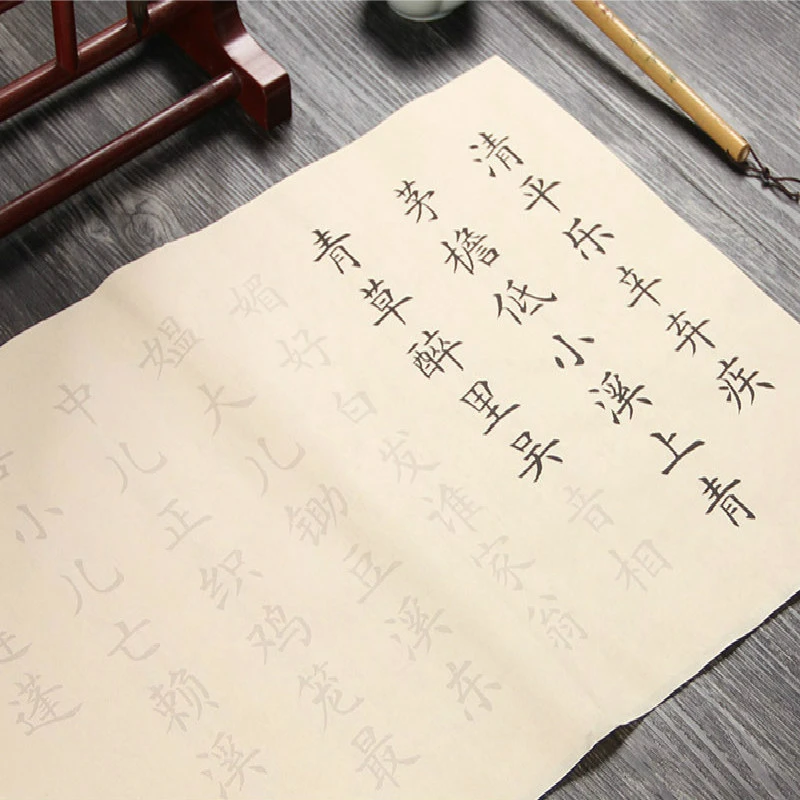 清平乐辛弃疾
茅檐低小溪上青
青草醉里吴音相
媚好白发谁家翁
媪大儿锄豆溪东
中儿正织鸡笼最
小儿亡赖溪
蓬